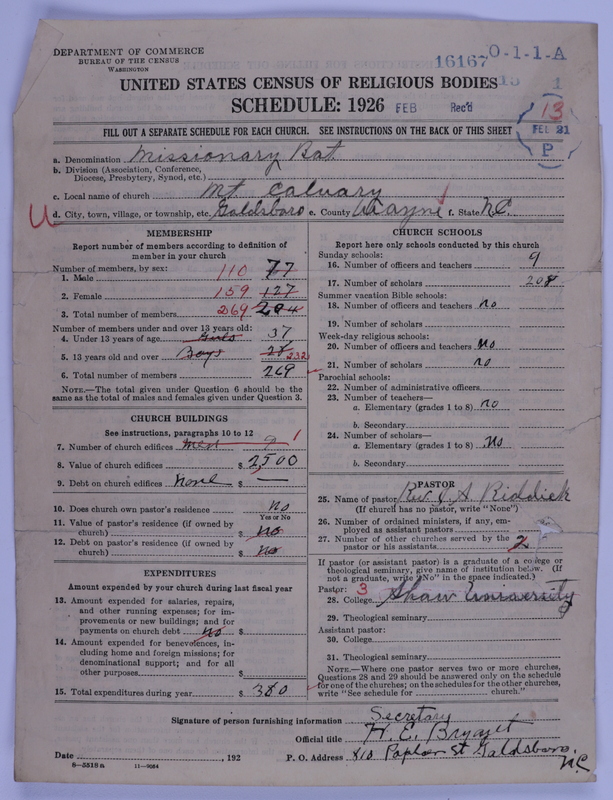 DEPARTMENT OF COMMERCE
BUREAU OF THE CENSUS
WASHINGTON
16167 O-1-1-A
UNITED STATES CENSUS OF RELIGIOUS BODIES
SCHEDULE: 1926 FEB Rec'd
13
FEB 21
P
FILL OUT A SEPARATE SCHEDULE FOR EACH CHURCH. SEE INSTRUCTIONS ON THE BACK OF THIS SHEET
a. Denomination Missionary Bat
b. Division (Association, Conference,
Diocese, Presbytery, Synod, etc.)
c. Local name of church Mt Calvary
d. City, town, village, or township, etc. Goldsboro e. County Wayne f. State N.C.
MEMBERSHIP
Report number of members according to definition of
member in your church
Number of members, by sex:
1. Male 110 77
2. Female 159 127
3. Total number of members 269 204
Number of members under and over 13 years old:
4. Under 13 years of age Girls 37
5. 13 years old and over Boys 232
6. Total number of members 269
NOTE.—The total given under Question 6 should be the
same as the total of males and females given under Question 3.
CHURCH BUILDINGS
See instructions, paragraphs 10 to 12
7. Number of church edifices 1
8. Value of church edifices $ 2500
9. Debt on church edifices None $ —
10. Does church own pastor's residence No
Yes or No
11. Value of pastor's residence (if owned by
church) $ No
12. Debt on pastor's residence (if owned by
church) $ No
EXPENDITURES
Amount expended by your church during last fiscal year
13. Amount expended for salaries, repairs,
and other running expenses; for im-
provements or new buildings; and for
payments on church debt no $
14. Amount expended for benevolences, in-
cluding home and foreign missions; for
denominational support; and for all
other purposes $
15. Total expenditures during year $ 380
CHURCH SCHOOLS
Report here only schools conducted by this church
Sunday schools:
16. Number of officers and teachers 9
17. Number of scholars 208
Summer vacation Bible schools:
18. Number of officers and teachers no
19. Number of scholars
Week-day religious schools:
20. Number of officers and teachers No
21. Number of scholars no
Parochial schools:
22. Number of administrative officers
23. Number of teachers—
a. Elementary (grades 1 to 8) no
b. Secondary
24. Number of scholars—
a. Elementary (grades 1 to 8) No
b. Secondary
PASTOR
25. Name of pastor Rev J A Riddick
(If church has no pastor, write "None")
26. Number of ordained ministers, if any, em-
ployed as assistant pastors
27. Number of other churches served by the
pastor or his assistants 2
If pastor (or assistant pastor) is a graduate of a college or
theological seminary, give name of institution below. (If
not a graduate, write "No" in the space indicated.)
Pastor: 3
28. College Shaw University
29. Theological seminary
Assistant pastor:
30. College
31. Theological seminary
NOTE.—Where one pastor serves two or more churches,
Questions 28 and 29 should be answered only on the schedule
for one of the churches; on the schedules for the other churches,
write "See schedule for church."
Signature of person furnishing information Secretary
Official title H. E. Bryant
Date , 192 P. O. Address 810 Poplar St Goldsboro,
N.C
8—5518a 11—9064